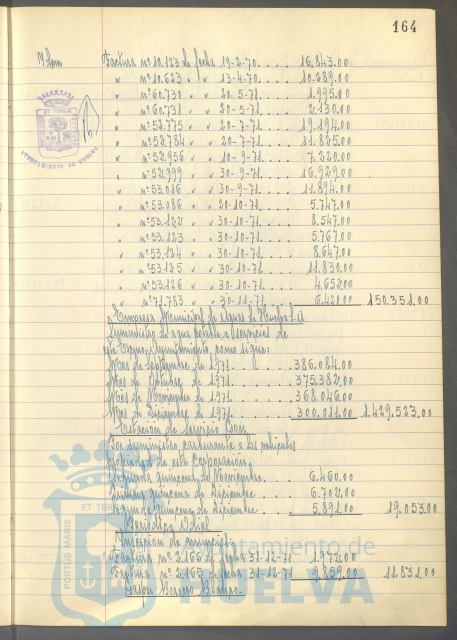 164
Factura nº 10.123 de fecha 19-2-70.... 16.843.00
" nº 10.623 " " 13-4-70.... 10.289.00
" nº 60.730 " " 20-5-71.... 1.995.00
" nº 60.731 " " 20-5-71.... 2.130.00
" nº 52.775 " " 20-7-71.... 19.194.00
" nº 52.784 " " 20-7-71.... 11.825.00
" nº 52.956 " " 10-9-71.... 7.220.00
" nº 52.999 " " 30-9-71.... 16.929.00
" nº 53.016 " " 30-9-71.... 11.894.00
" nº 53.086 " " 20-10-71.... 5.747.00
" nº 53.122 " " 30-10-71.... 8.547.00
" nº 53.123 " " 30-10-71.... 5.767.00
" nº 53.124 " " 30-10-71.... 8.647.00
" nº 53.125 " " 30-10-71.... 11.830.00
" nº 53.126 " " 30-10-71.... 4.652.00
" nº 71.783 " 30-11-71.... 6.421.00 150.351.00
Empresa Municipal de Aguas de Huelva S.A.
Suministro de agua potable a servicios de
este Excmo. Ayuntamiento, como sigue:
Mes de Septiembre de 1971.... 386.084.00
Mes de Octubre de 1971.... 375.382.00
Mes de Noviembre de 1971.... 368.046.00
Mes de Diciembre de 1971.... 300.011.00 1.429.523.00
Estación de Servicio
Por suministro carburante a los vehículos
oficiales de esta Corporación,
Segunda quincena de Noviembre.. 6.460.00
Primera quincena de Diciembre... 6.702.00
Segunda quincena de Diciembre... 5.891.00 19.053.00
Periódico Odiel
Inserción de anuncios:
Factura nº 2.166 de fecha 31-12-71 1.972.00
Factura nº 2.165 de fecha 31-12-71 9.859.00 11.831.00
Borrero
AYUNTAMIENTO DE HUELVA
PORTUS MARIS
ET TERRAE
Ayuntamiento de
HUELVA